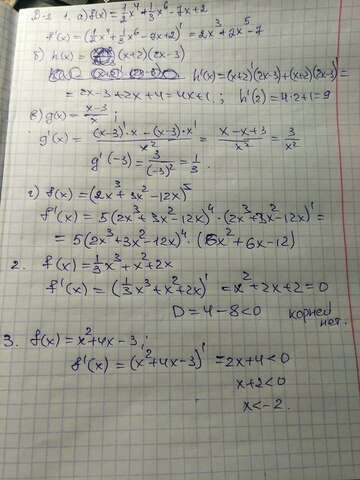 Д-1 1. а) f(x) = 1/2 x⁴ + 1/3 x⁶ - 7x + 2
f'(x) = (1/2 x⁴ + 1/3 x⁶ - 7x + 2)' = 2x³ + 2x⁵ - 7
б) h(x) = (x+2)(2x-3)
h'(x) = (x+2)'(2x-3) + (x+2)(2x-3)' =
= 2x-3 + 2x + 4 = 4x + 1. ; h'(2) = 4·2+1 = 9
в) g(x) = (x-3)/x ;
g'(x) = ((x-3)'·x - (x-3)·x')/x² = (x-x+3)/x² = 3/x²
g'(-3) = 3/(-3)² = 1/3.
г) f(x) = (2x³ + 3x² - 12x)⁵
f'(x) = 5(2x³ + 3x² - 12x)⁴ · (2x³ + 3x² - 12x)' =
= 5(2x³ + 3x² - 12x)⁴ · (6x² + 6x - 12)
2. f(x) = 1/3 x³ + x² + 2x
f'(x) = (1/3 x³ + x² + 2x)' = x² + 2x + 2 = 0
D = 4 - 8 < 0 корней
нет.
3. f(x) = x² + 4x - 3;
f'(x) = (x² + 4x - 3)' = 2x + 4 < 0
x + 2 < 0
x < -2.